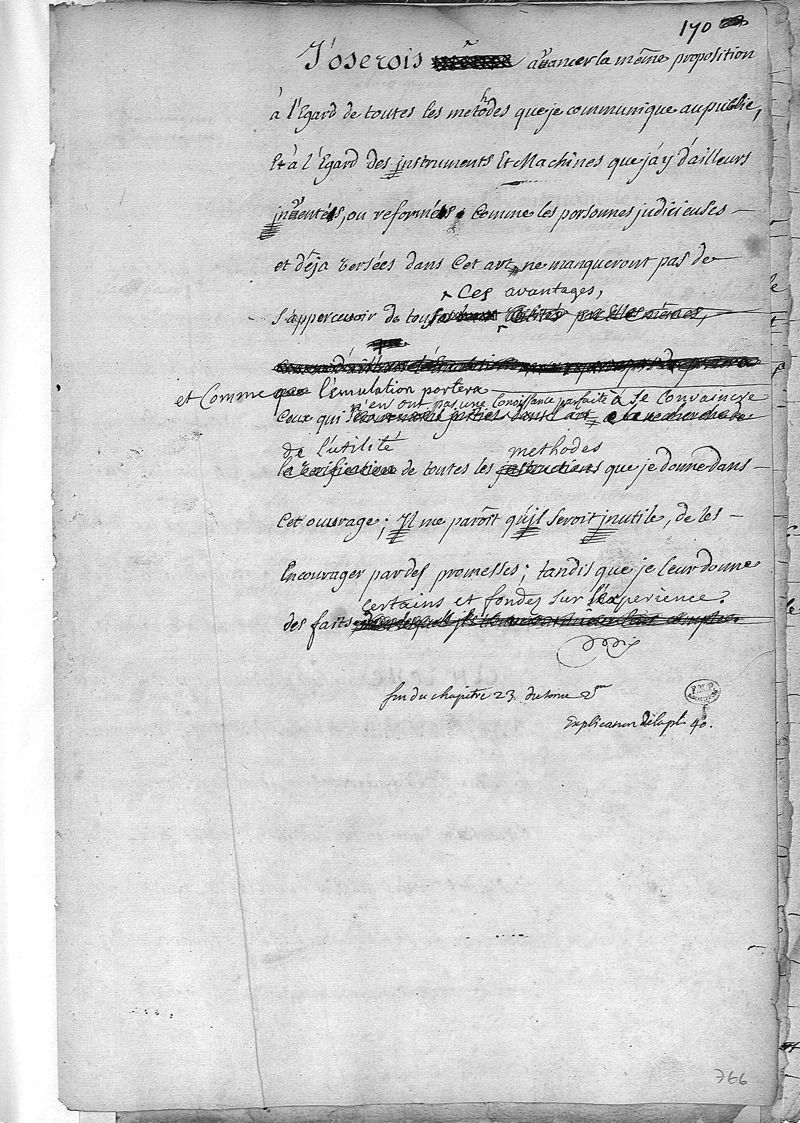 170
J'oserois avancer la même proposition
à l'Egard de toutes les methodes que je communique au public,
Et à l'Egard des instruments Et Machines que j'ay d'ailleurs
inventés, ou reformés; Comme les personnes judicieuses
et déja versées dans Cet art, ne manqueront pas de
Ces avantages,
S'appercevoir de tous
et Comme l'émulation portera
n'en ont pas une Conoissance parfaite à se Convaincre
Ceux qui
de l'utilité methodes
de toutes les que je donne dans
Cet ouvrage; Il me paroît qu'il seroit inutile, de les
Encourager par des promesses; tandis que je leur donne
certains et fondez sur l'experience.
des faits
fin du chapitre 23. du tome 2.
Explication de la pl. 40.
766